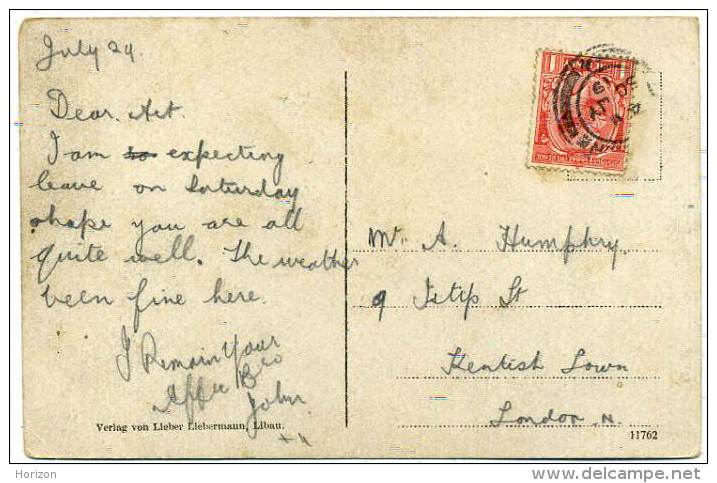 July 24.
Dear. Art.
I am to expecting
leave on Saturday
ohope you are all
quite well. The weather
been fine here.
I Remain Your
Affec Bro
John
Mr. A. Humphry.
9 Islip St
Kentish Town
London N.
Verlag von Lieber Liebermann, Libau.
11762
Horizon
www.delcampe.net